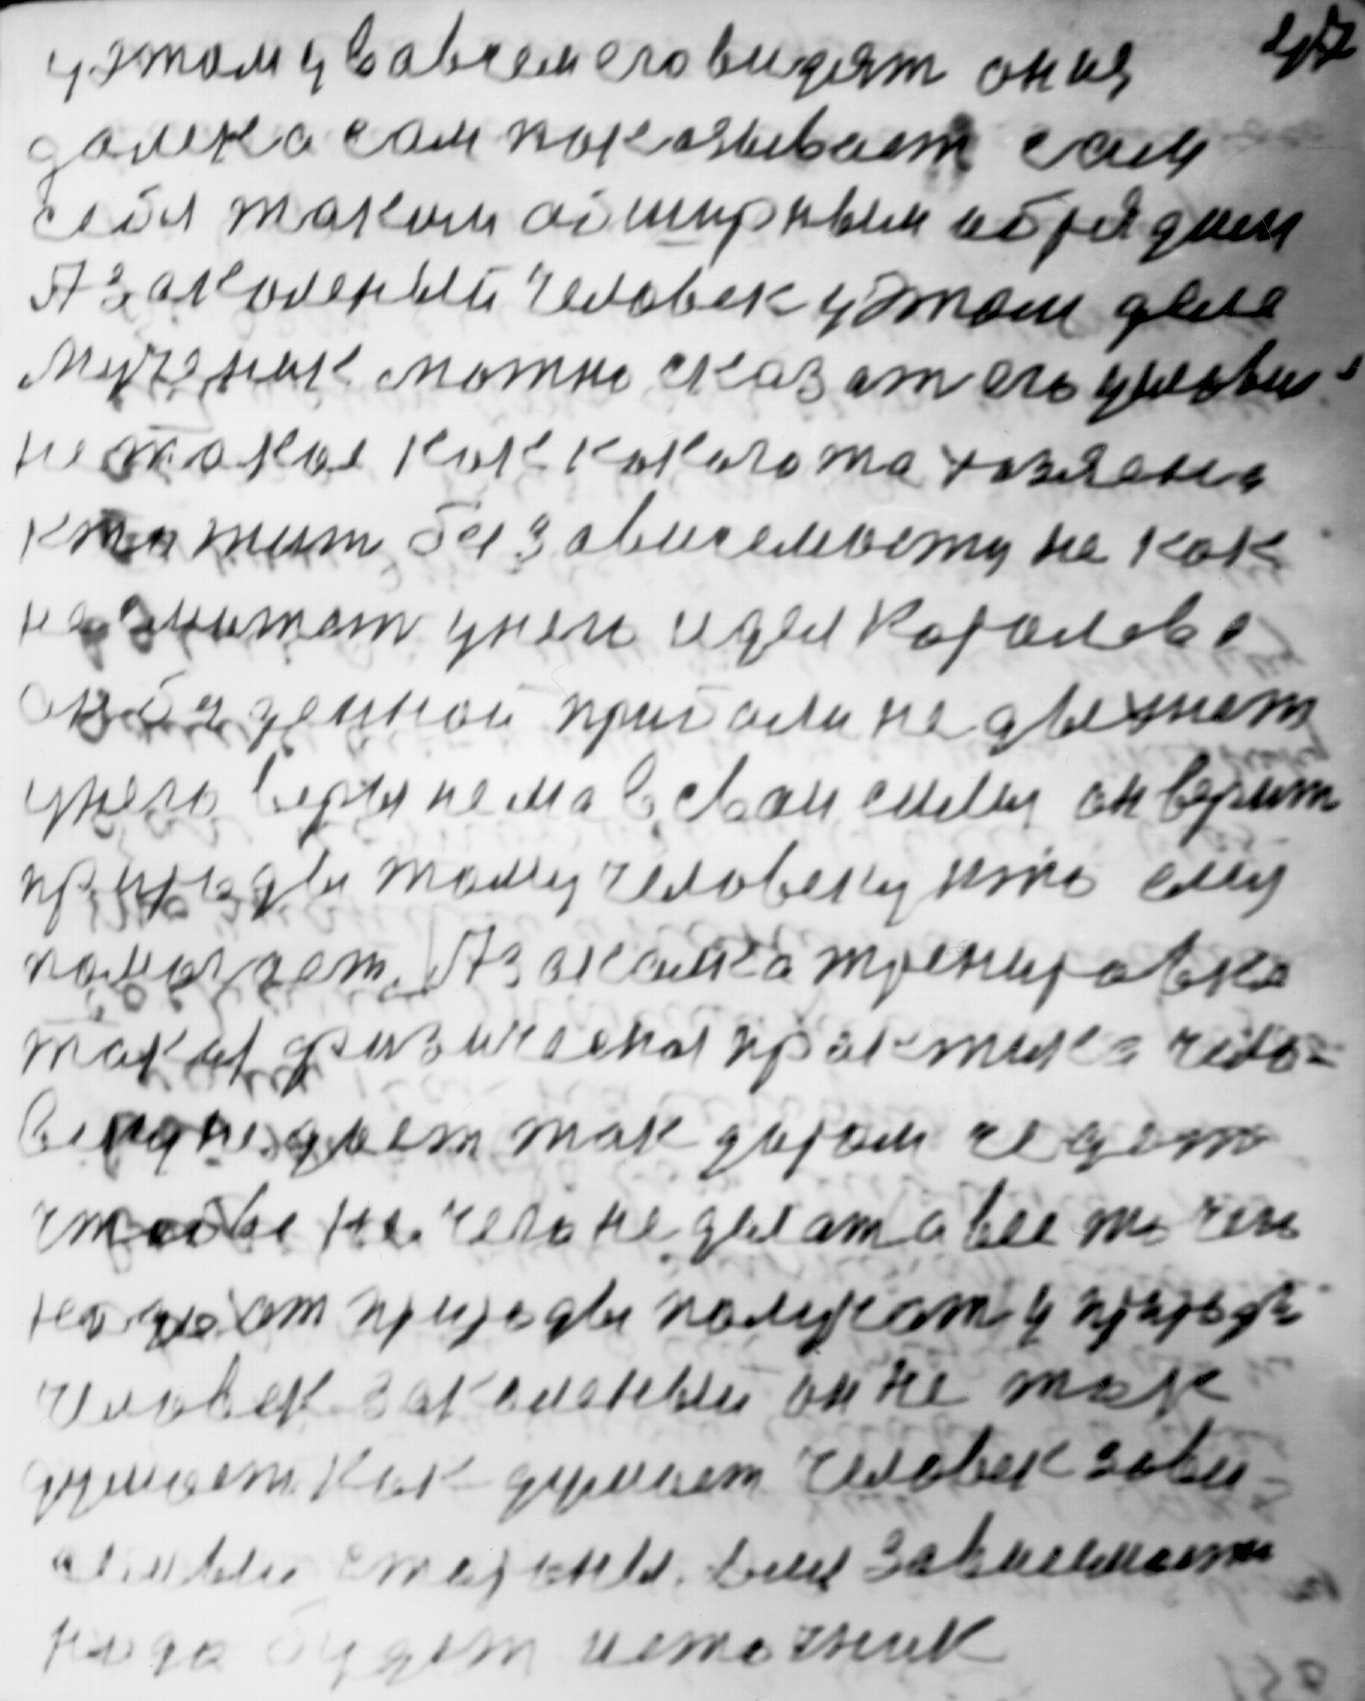 у этому вовсем его видят он из
далека сам показывает сам
себя таким обширным обрядом
А закаленый человек у этом деле
Мученик можно сказат его условия
не такое как какога та хозяена
кто жит без зависемосту не как
не считает у нем идея
он буденной прибоми не движет
у него веры нема в свои силы он верит
природы тому человеку што ему
помогает. А закалка тренировка
такая физическая практика чело-
веку не дает так даром седет
чтобы не чего не делат а все то чего
надо от природы получат у природе
человек закаленый он не так
думает как думает человек зави
симый стороны. вили зависимости
надо будет источник